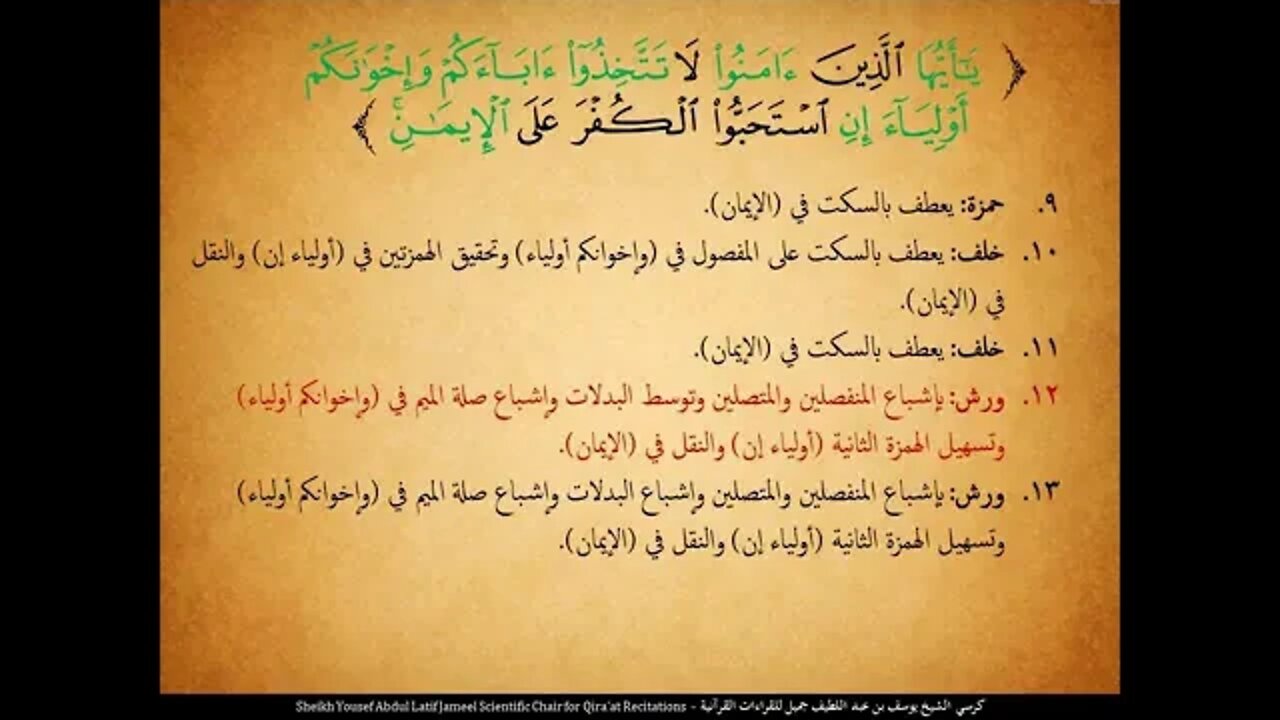 ﴿ يَـٰٓأَيُّهَا ٱلَّذِينَ ءَامَنُوا۟ لَا تَتَّخِذُوٓا۟ ءَابَآءَكُمْ وَإِخْوَٰنَكُمْ
أَوْلِيَآءَ إِنِ ٱسْتَحَبُّوا۟ ٱلْكُفْرَ عَلَى ٱلْإِيمَـٰنِ ۚ ﴾
٩. حمزة: يعطف بالسكت في (الإيمان).
١٠. خلف: يعطف بالسكت على المفصول في (وإخوانكم أولياء) وتحقيق الهمزتين في (أولياء إن) والنقل
في (الإيمان).
١١. خلف: يعطف بالسكت في (الإيمان).
١٢. ورش: بإشباع المنفصلين والمتصلين وتوسط البدلات وإشباع صلة الميم في (وإخوانكم أولياء)
وتسهيل الهمزة الثانية (أولياء إن) والنقل في (الإيمان).
١٣. ورش: بإشباع المنفصلين والمتصلين وإشباع البدلات وإشباع صلة الميم في (وإخوانكم أولياء)
وتسهيل الهمزة الثانية (أولياء إن) والنقل في (الإيمان).
كرسي الشيخ يوسف بن عبد اللطيف جميل للقراءات القرآنية - Sheikh Yousef Abdul Latif Jameel Scientific Chair for Qira'at Recitations